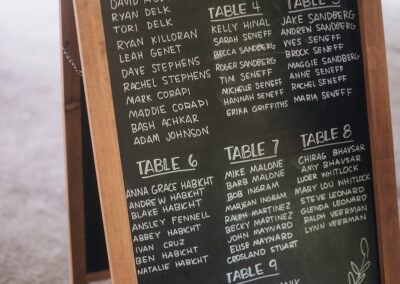 RYAN DELK
TORI DELK
RYAN KILLORAN
LEAH GENET
DAVE STEPHENS
RACHEL STEPHENS
MARK CORAPI
MADDIE CORAPI
BASH ACHKAR
ADAM JOHNSON
TABLE 4
KELLY HINAL
SARAH SENEFF
BECCA SANDBERG
ROGER SANDBERG
TIM SENEFF
MICHELLE SENEFF
HANNAH SENEFF
ERIKA GRIFFITHS
JAKE SANDBERG
ANDREW SANDBERG
WES SENEFF
BROCK SENEFF
MAGGIE SANDBERG
ANNE SENEFF
RACHEL SENEFF
MARIA SENEFF
TABLE 6
ANNA GRACE HABICHT
ANDREW HABICHT
BLAKE HABICHT
ANSLEY FENNELL
ABBEY HABICHT
IVAN CRUZ
BEN HABICHT
NATALIE HABICHT
TABLE 7
MIKE MALONE
BARB MALONE
BOB INGRAM
MARJEAN INGRAM
RALPH MARTINEZ
BECKY MARTINEZ
JOHN MAYNARD
ELISE MAYNARD
CROSLAND STUART
TABLE 8
CHIRAG BHAVSAR
AMY BHAVSAR
LUDER WHITLOCK
MARY LOU WHITLOCK
STEVE LEONARD
GLENDA LEONARD
RALPH VEERMAN
LYNN VEERMAN
TABLE 9